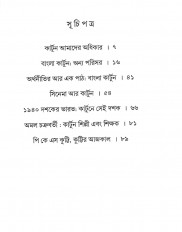 সূচিপত্র
কার্টুন আমাদের অধিকার । ৭
বাংলা কার্টুন: অন্য পরিসর । ১৬
অর্থনীতির আর এক পাঠ: বাংলা কার্টুন । ৪১
সিনেমা আর কার্টুন । ৫৪
১৯৪০ দশকের ভারত: কার্টুনে সেই দশক । ৬৬
অমল চক্রবর্তী : কার্টুন শিল্পী এবং শিক্ষক । ৮১
পি কে এস কুট্টি, কুট্টির আজকাল । ৮৯